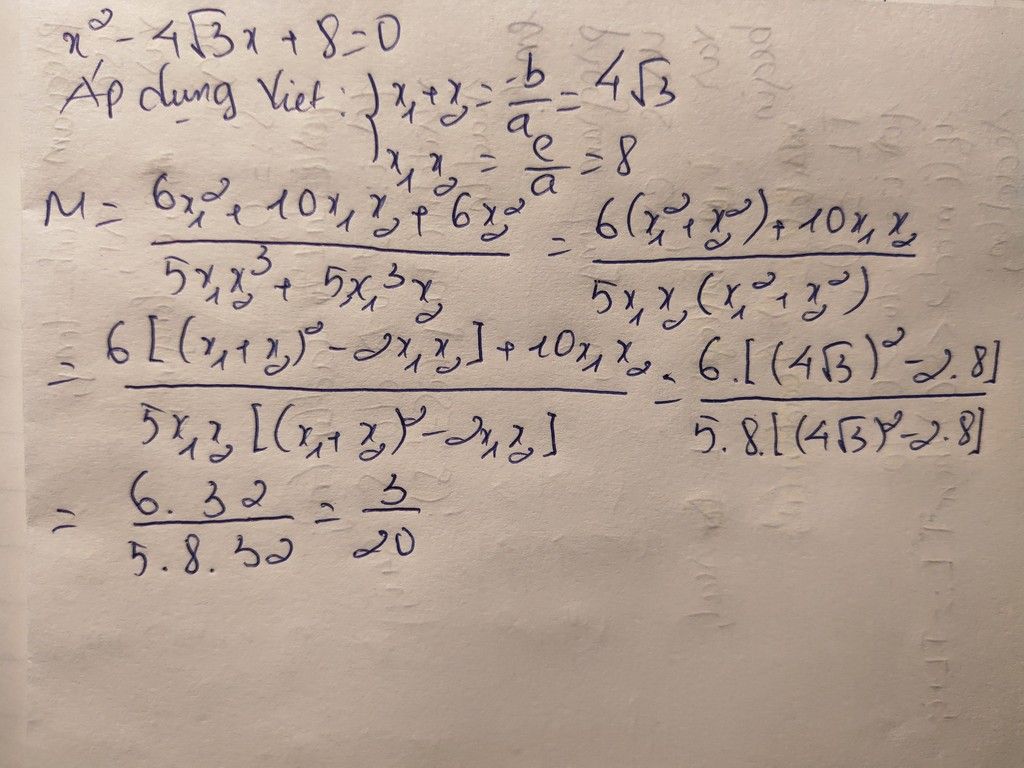 x² - 4√3x + 8 = 0
Áp dụng Viet: { x₁ + x₂ = -b/a = 4√3
x₁x₂ = c/a = 8
M = (6x₁² + 10x₁x₂ + 6x₂²)/(5x₁x₂³ + 5x₁³x₂) = (6(x₁² + x₂²) + 10x₁x₂)/(5x₁x₂(x₁² + x₂²))
= (6[(x₁ + x₂)² - 2x₁x₂] + 10x₁x₂)/(5x₁x₂[(x₁ + x₂)² - 2x₁x₂]) = (6.[(4√3)² - 2.8])/(5.8.[(4√3)² - 2.8])
= (6.32)/(5.8.32) = 3/20